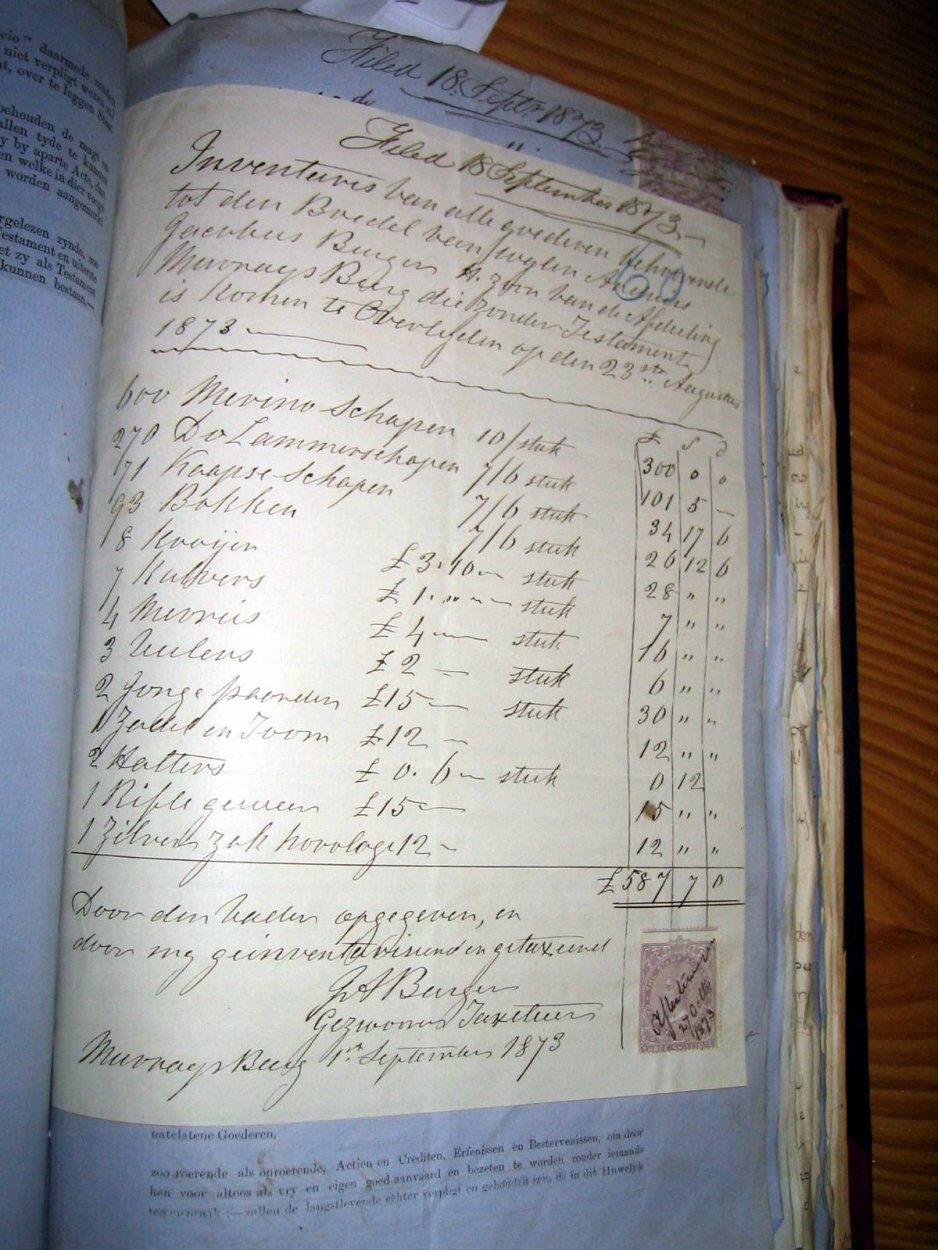 cio" daarmede zonder
niet verpligt wezen zal
at, over te leggen Staat
behouden de magt om
allen tyde te kunnen
y by aparte Acte, dan
en welke in dier voege
worden aangemerkt
rgelezen zynde, zoo
Testament en uiterste
et zy als Testament
kunnen bestaan,—
Filed 18 Septr. 1873
Filed 18 September 1873.—
Inventaris van alle goederen behoorende
tot den Boedel van wylen Andries
Jacobus Burger A. zoon van de Afdeeling
Murrays Burg die zonder Testament
is Komen te Overlyden op den 23ste Augustus
1873
£ s d
600 Merino Schapen 10/ stuk 300 0 0
270 Do Lammerschapen 7/6 stuk 101 5 —
171 Kaapse Schapen 7/6 stuk 34 17 6
93 Bokken 7/6 stuk 26 12 6
8 Kooijen £3.10— stuk 28 " "
7 Kalvers £1.""— stuk 7 " "
4 Merries £4— stuk 16 " "
3 Veulens £2— stuk 6 " "
2 Jonge paarden £15— stuk 30 " "
1 Zadel en Toom £12— 12 " "
2 Halters £0.6— stuk 0 12
1 Rifle geweer £15— 15 " "
1 Zilver zak horologe 12— 12 " "
£587 7 0
Door den vader opgegeven, en
door my geinventariseerd en getaxeerd
Burger
Gezworen Taxateur
Murrays Burg 1st September 1873
2 Octb
1873
THREE SHILLINGS
natelatene Goederen,
zoo roerende als onroerende, Actien en Crediten, Erfenissen en Bestervenissen, om door
hen voor altoos als vry en eigen goed aanvaard en bezeten te worden zonder iemands
tegenspraak :—zullen de langstlevende echter verpligt en gehouden zyn de in dit Huwelyk